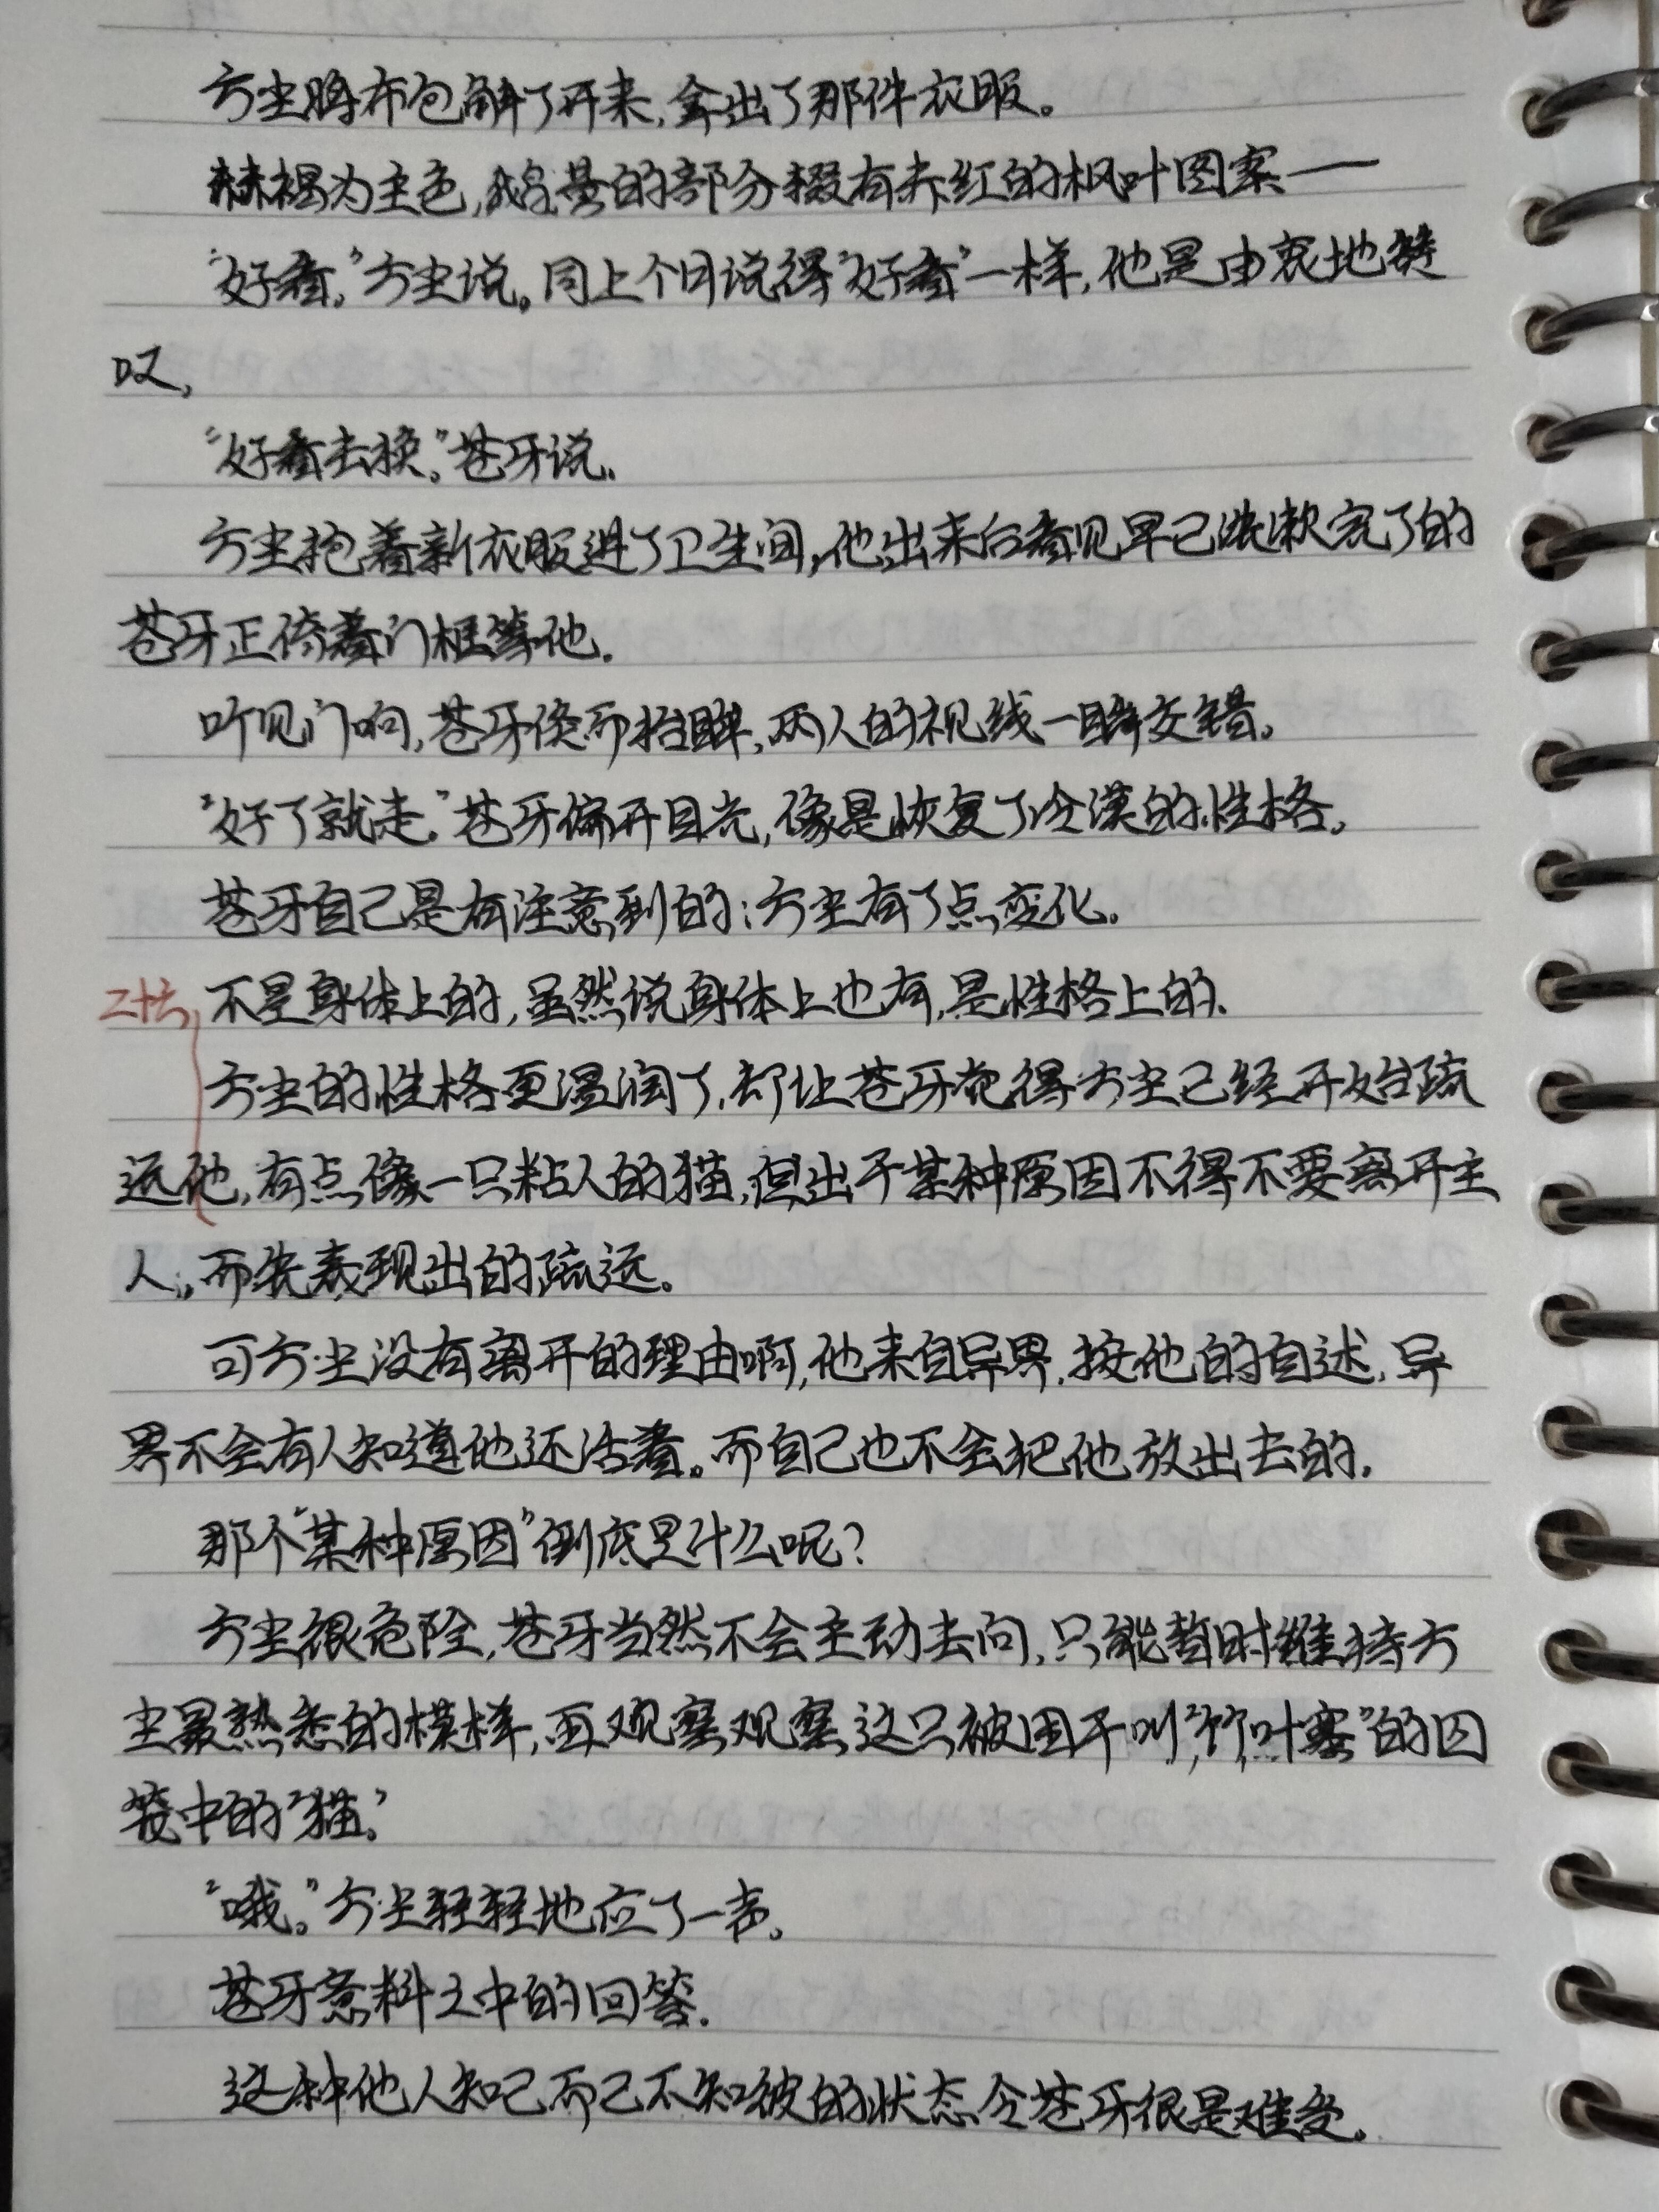 方尘将布包解了开来,拿出了那件衣服。
赫褐为主色,鹅黄的部分缀有赤红的枫叶图案——
“好看。”方尘说。同上个月说得“好看”一样,他是由衷地赞
叹。
“好看去换。”苍牙说。
方尘抱着新衣服进了卫生间,他出来后看见早已洗漱完了的
苍牙正倚着门框等他。
听见门响,苍牙倏而抬眸,两人的视线一瞬交错。
“好了就走。”苍牙偏开目光,像是恢复了冷漠的性格。
苍牙自己是有注意到的:方尘有了点变化。
二十六 不是身体上的,虽然说身体上也有,是性格上的。
方尘的性格更温润了,却让苍牙觉得方尘已经开始疏
远他,有点像一只粘人的猫,但出于某种原因不得不要离开主
人,而先表现出的疏远。
可方尘没有离开的理由啊,他来自异界,按他的自述,异
界不会有人知道他还活着。而自己也不会把他放出去的。
那个“某种原因”倒底是什么呢?
方尘很危险,苍牙当然不会主动去问,只能暂时维持方
尘最熟悉的模样,再观察观察这只被困于叫“竹叶寨”的囚
笼中的“猫”。
“哦。”方尘轻轻地应了一声。
苍牙意料之中的回答。
这种他人知己而己不知彼的状态令苍牙很是难受。